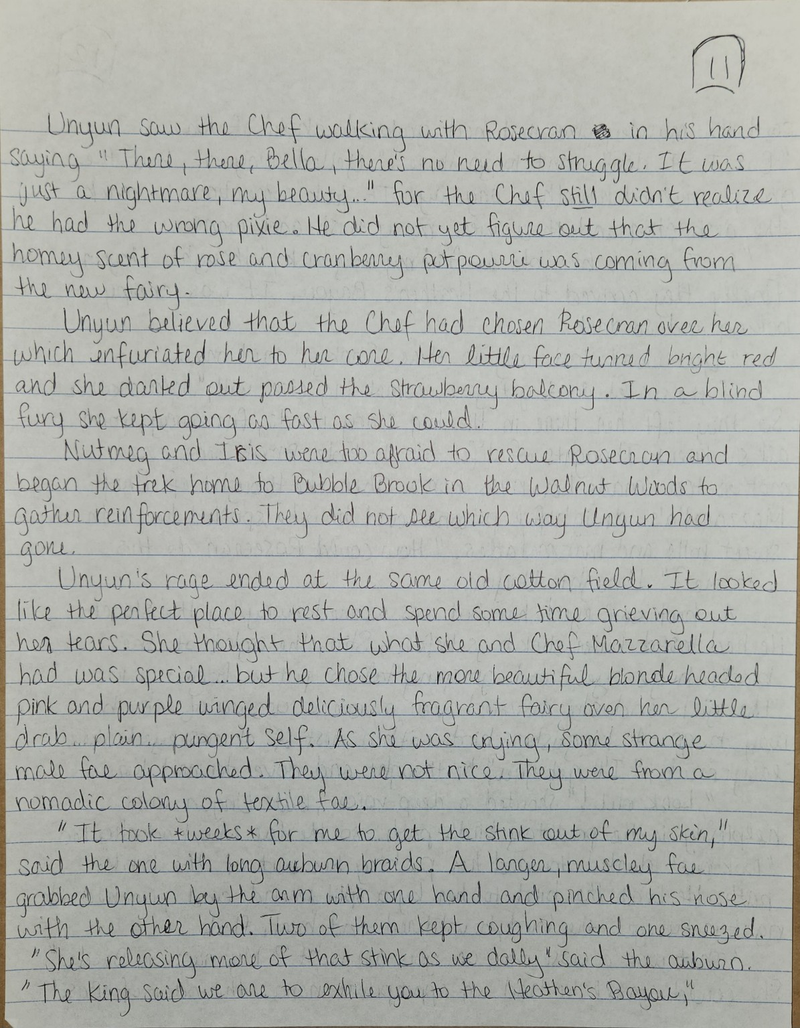 11
Unyun saw the Chef walking with Rosecran in his hand
saying "There, there, Bella, there's no need to struggle. It was
just a nightmare, my beauty..." for the Chef still didn't realize
he had the wrong pixie. He did not yet figure out that the
homey scent of rose and cranberry potpourri was coming from
the new fairy.
Unyun believed that the Chef had chosen Rosecran over her
which infuriated her to her core. Her little face turned bright red
and she darted out passed the strawberry balcony. In a blind
fury she kept going as fast as she could.
Nutmeg and Ibis were too afraid to rescue Rosecran and
began the trek home to Bubble Brook in the Walnut Woods to
gather reinforcements. They did not see which way Unyun had
gone.
Unyun's rage ended at the same old cotton field. It looked
like the perfect place to rest and spend some time grieving out
her tears. She thought that what she and Chef Mazzarella
had was special... but he chose the more beautiful blonde headed
pink and purple winged deliciously fragrant fairy over her little
drab... plain... pungent self. As she was crying, some strange
male fae approached. They were not nice. They were from a
nomadic colony of textile fae.
"It took *weeks* for me to get the stink out of my skin,"
said the one with long auburn braids. A larger, muscley fae
grabbed Unyun by the arm with one hand and pinched his nose
with the other hand. Two of them kept coughing and one sneezed.
"She's releasing more of that stink as we dally" said the auburn.
"The King said we are to exhile you to the Heathen's Bayou,"